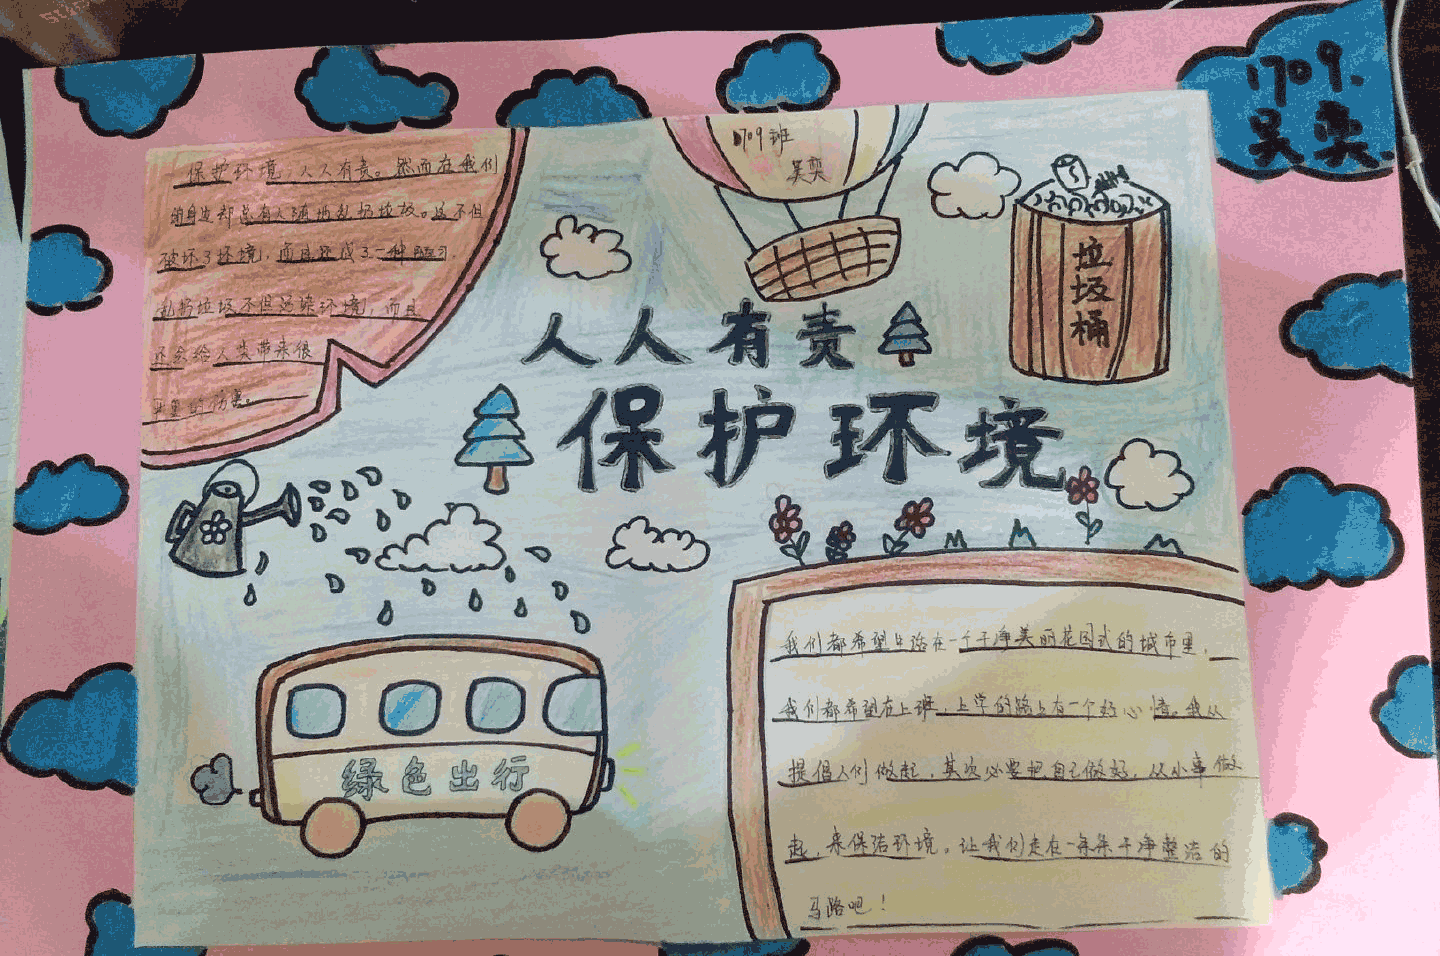 1709.
吴奕
1709班
吴奕
保护环境,人人有责。然而在我们
的身边却总有人随地乱扔垃圾。这不但
破坏了环境,而且还成了一种陋习.
乱扔垃圾不但污染环境,而且
还会给人类带来很
严重的伤害。
垃圾桶
人人有责
保护环境
绿色出行
我们都希望生活在一个干净美丽花园式的城市里,
我们都希望在上班,上学的路上有一个好心情。我从
提倡人们做起,其次必要把自己做好,从小事做
起,来保洁环境。让我们走在一条条干净整洁的
马路吧!